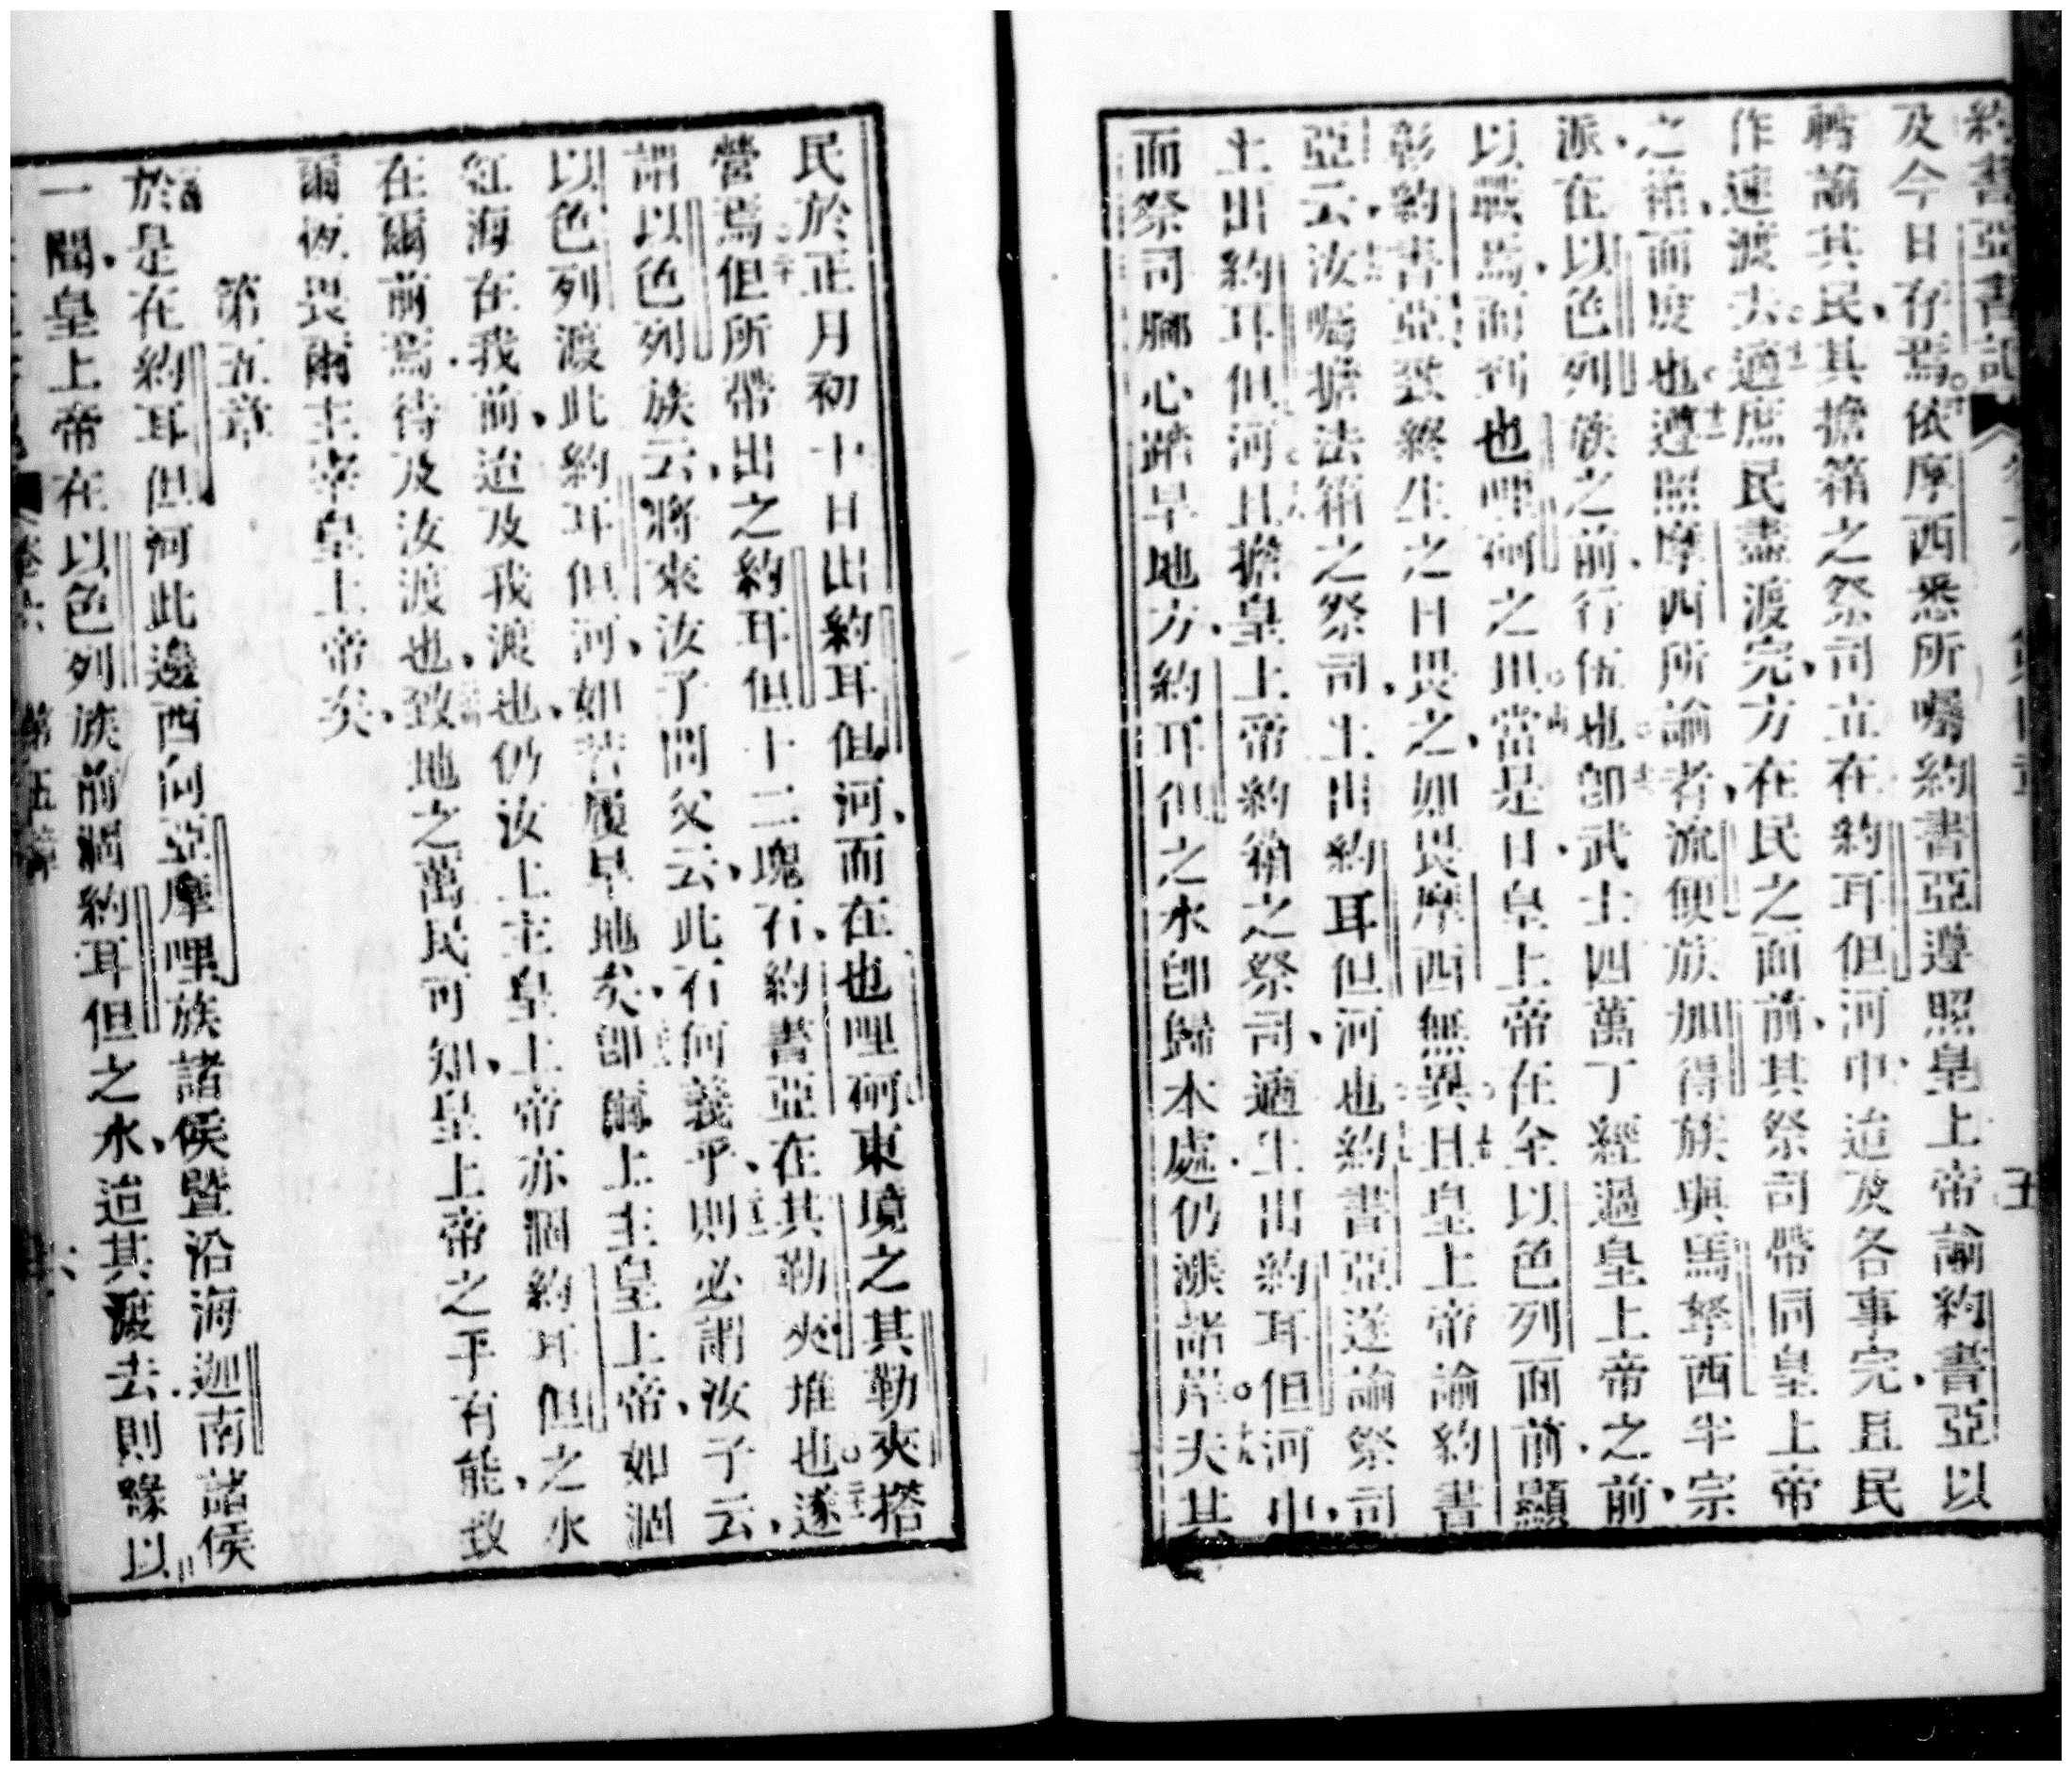 約書亞書記 五
及今日存焉。依摩西悉所囑約書亞遵照皇上帝諭約書亞以
轉諭其民、其擔箱之祭司立在約耳但河中、迨及各事完、且民
作速渡去。適庶民盡渡完、方在民之面前、其祭司帶同皇上帝
之箱、而度也。遵照摩西所諭者、流便族加得族與馬拏西半宗
派、在以色列族之前、行伍也。卽武士四萬丁經過皇上帝之前、
以戰焉、而到也哩何之田。當是日、皇上帝在全以色列面前、顯
彰約書亞、致終生之日畏之、如畏摩西無異。且皇上帝諭約書
亞云、汝囑擔法箱之祭司、上出約耳但河也。約書亞遂諭祭司
上出約耳但河。且擔皇上帝約箱之祭司、適上出約耳但河中、
而祭司腳心踏旱地方、約耳但之水卽歸本處、仍漲諸岸。夫其
民於正月初十日出約耳但河、而在也哩何東境之其勒夾搭
營焉。但所帶出之約耳但十二塊石、約書亞在其勒夾堆也。遂
謂以色列族云、將來汝子問父云、此石何義乎、則必謂汝子云、
以色列渡此約耳但河、如若履旱地矣。卽爾上主皇上帝、如涸
紅海在我前、迨及我渡也、仍汝上主皇上帝亦涸約耳但之水
在爾前焉、待及汝渡也、致地之萬民可知、皇上帝之手有能、致
爾恆畏爾主宰皇上帝矣。
第五章
於是在約耳但河此邊西向亞摩哩族諸侯暨沿海迦南諸侯
一聞、皇上帝在以色列族前涸約耳但之水、迨其渡去、則緣以
卷六 第五章 六